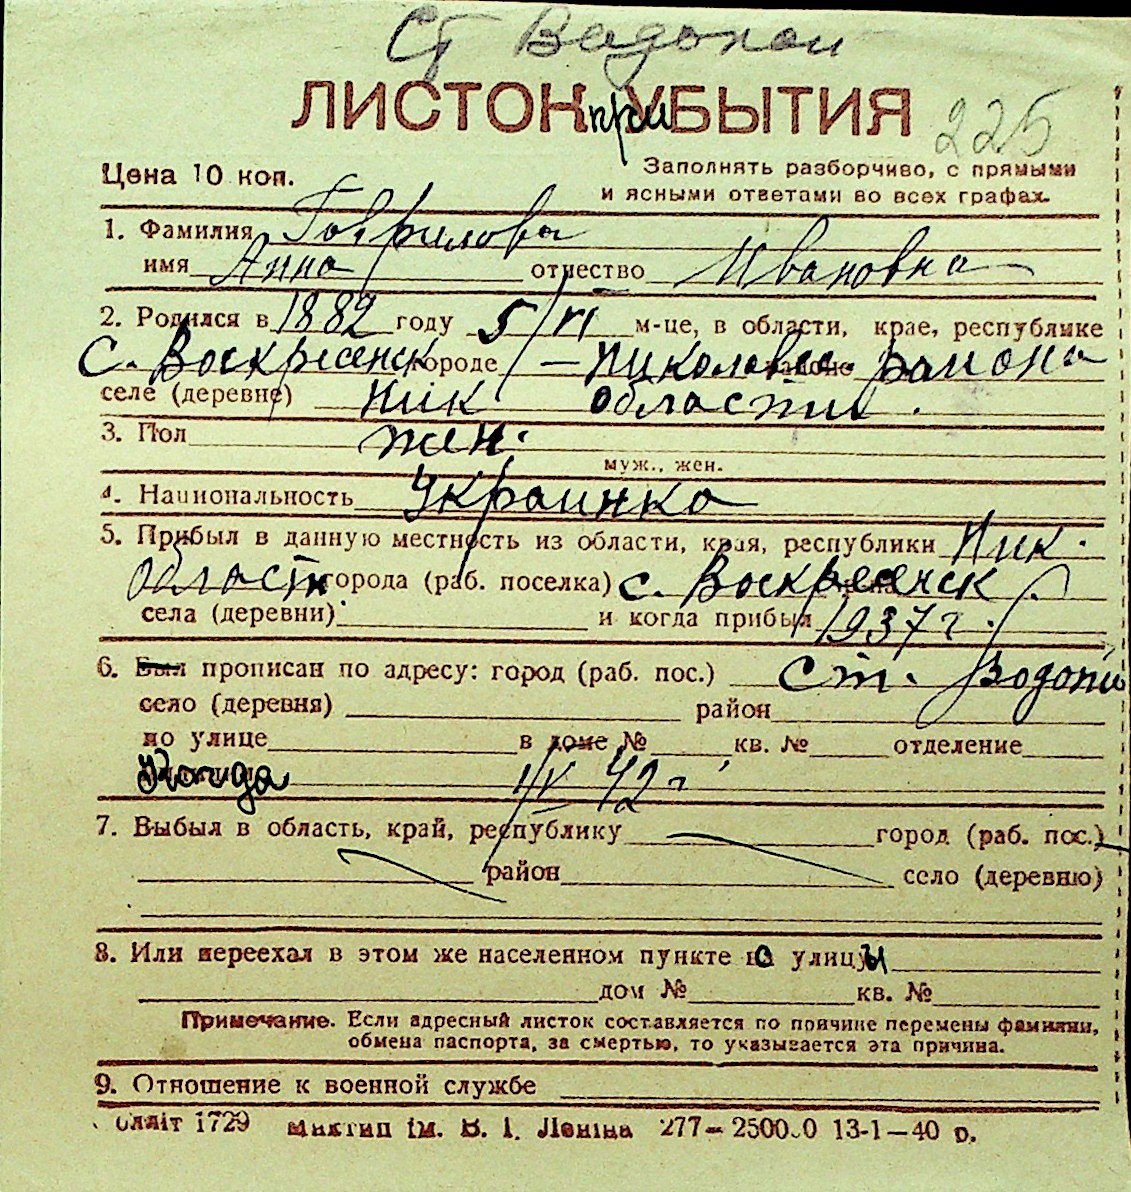 Ст Водопой
ЛИСТОК приУБЫТИЯ 225
Цена 10 коп.
Заполнять разборчиво, с прямыми
и ясными ответами во всех графах.
1. Фамилия Гаврилова
имя Анна отчество Ивановна
2. Родился в 1882 году 5/VI м-це, в области, крае, республике
с. Воскресенск городе — Николаевск. района
селе (деревне) Ник области.
3. Пол жен.
муж., жен.
4. Национальность Украинка
5. Прибыл в данную местность из области, края, республики Ник.
области города (раб. поселка) с. Воскресенск
села (деревни) и когда прибыл 1937 г.
6. Был прописан по адресу: город (раб. пос.) ст. Водопой
село (деревня) район
по улице в доме № кв. № отделение
Когда 1/IV 42 г
7. Выбыл в область, край, республику город (раб. пос.)
район село (деревню)
8. Или переехал в этом же населенном пункте со улицы
дом № кв. №
Примечание. Если адресный листок составляется по причине перемены фамилии,
обмена паспорта, за смертью, то указывается эта причина.
9. Отношение к военной службе
1729 ім. В. І. Леніна 277—2500.0 13-1—40 р.